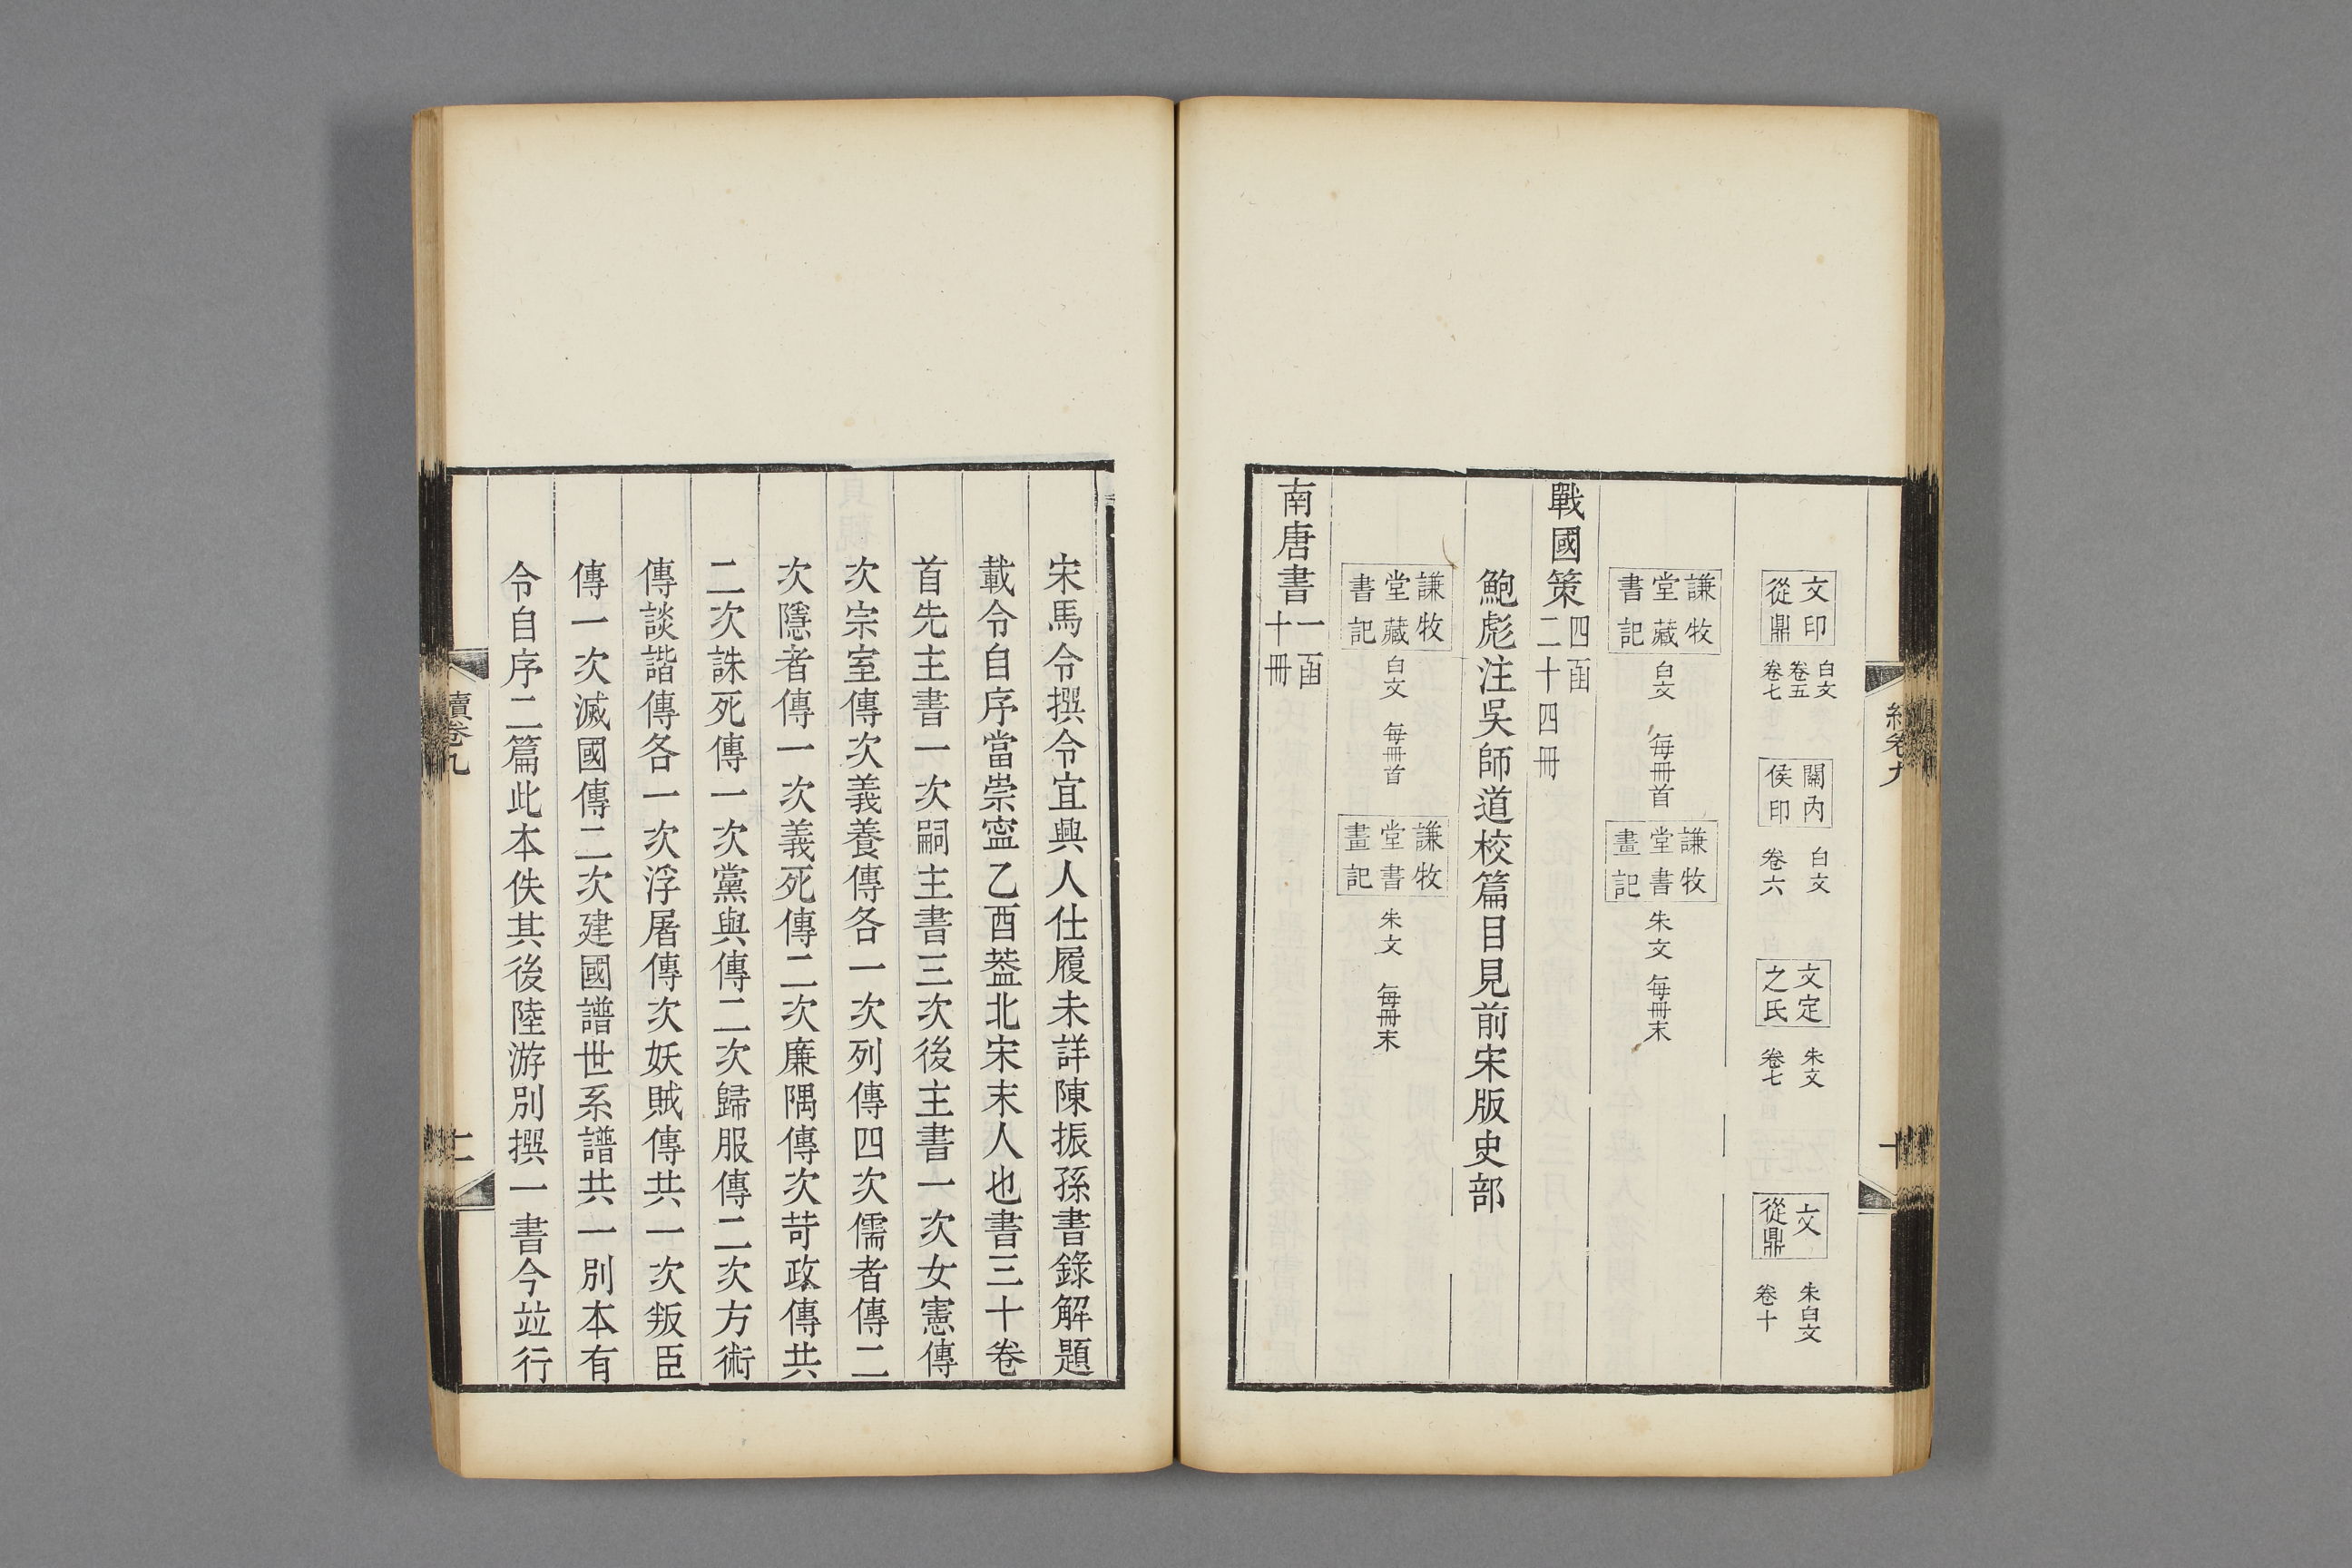 文印從鼎 白文 卷五 卷七 關內侯印 白文 卷六 文定之氏 朱文 卷七 文從鼎 朱白文 卷十
謙牧堂藏書記 白文 每冊首 謙牧堂書畫記 朱文 每冊末
戰國策 四函 二十四冊
鮑彪注吳師道校篇目見前宋版史部
謙牧堂藏書記 白文 每冊首 謙牧堂書畫記 朱文 每冊末
南唐書 一函 十冊
宋馬令撰令宜興人仕履未詳陳振孫書錄解題
載令自序當崇寍乙酉葢北宋末人也書三十卷
首先主書一次嗣主書三次後主書一次女憲傳
次宗室傳次義養傳各一次列傳四次儒者傳二
次隱者傳一次義死傳二次廉隅傳次苛政傳共
二次誅死傳一次黨與傳二次歸服傳二次方術
傳談諧傳各一次浮屠傳次妖賊傳共一次叛臣
傳一次滅國傳二次建國譜世系譜共一別本有
令自序二篇此本佚其後陸游別撰一書今竝行
續卷九